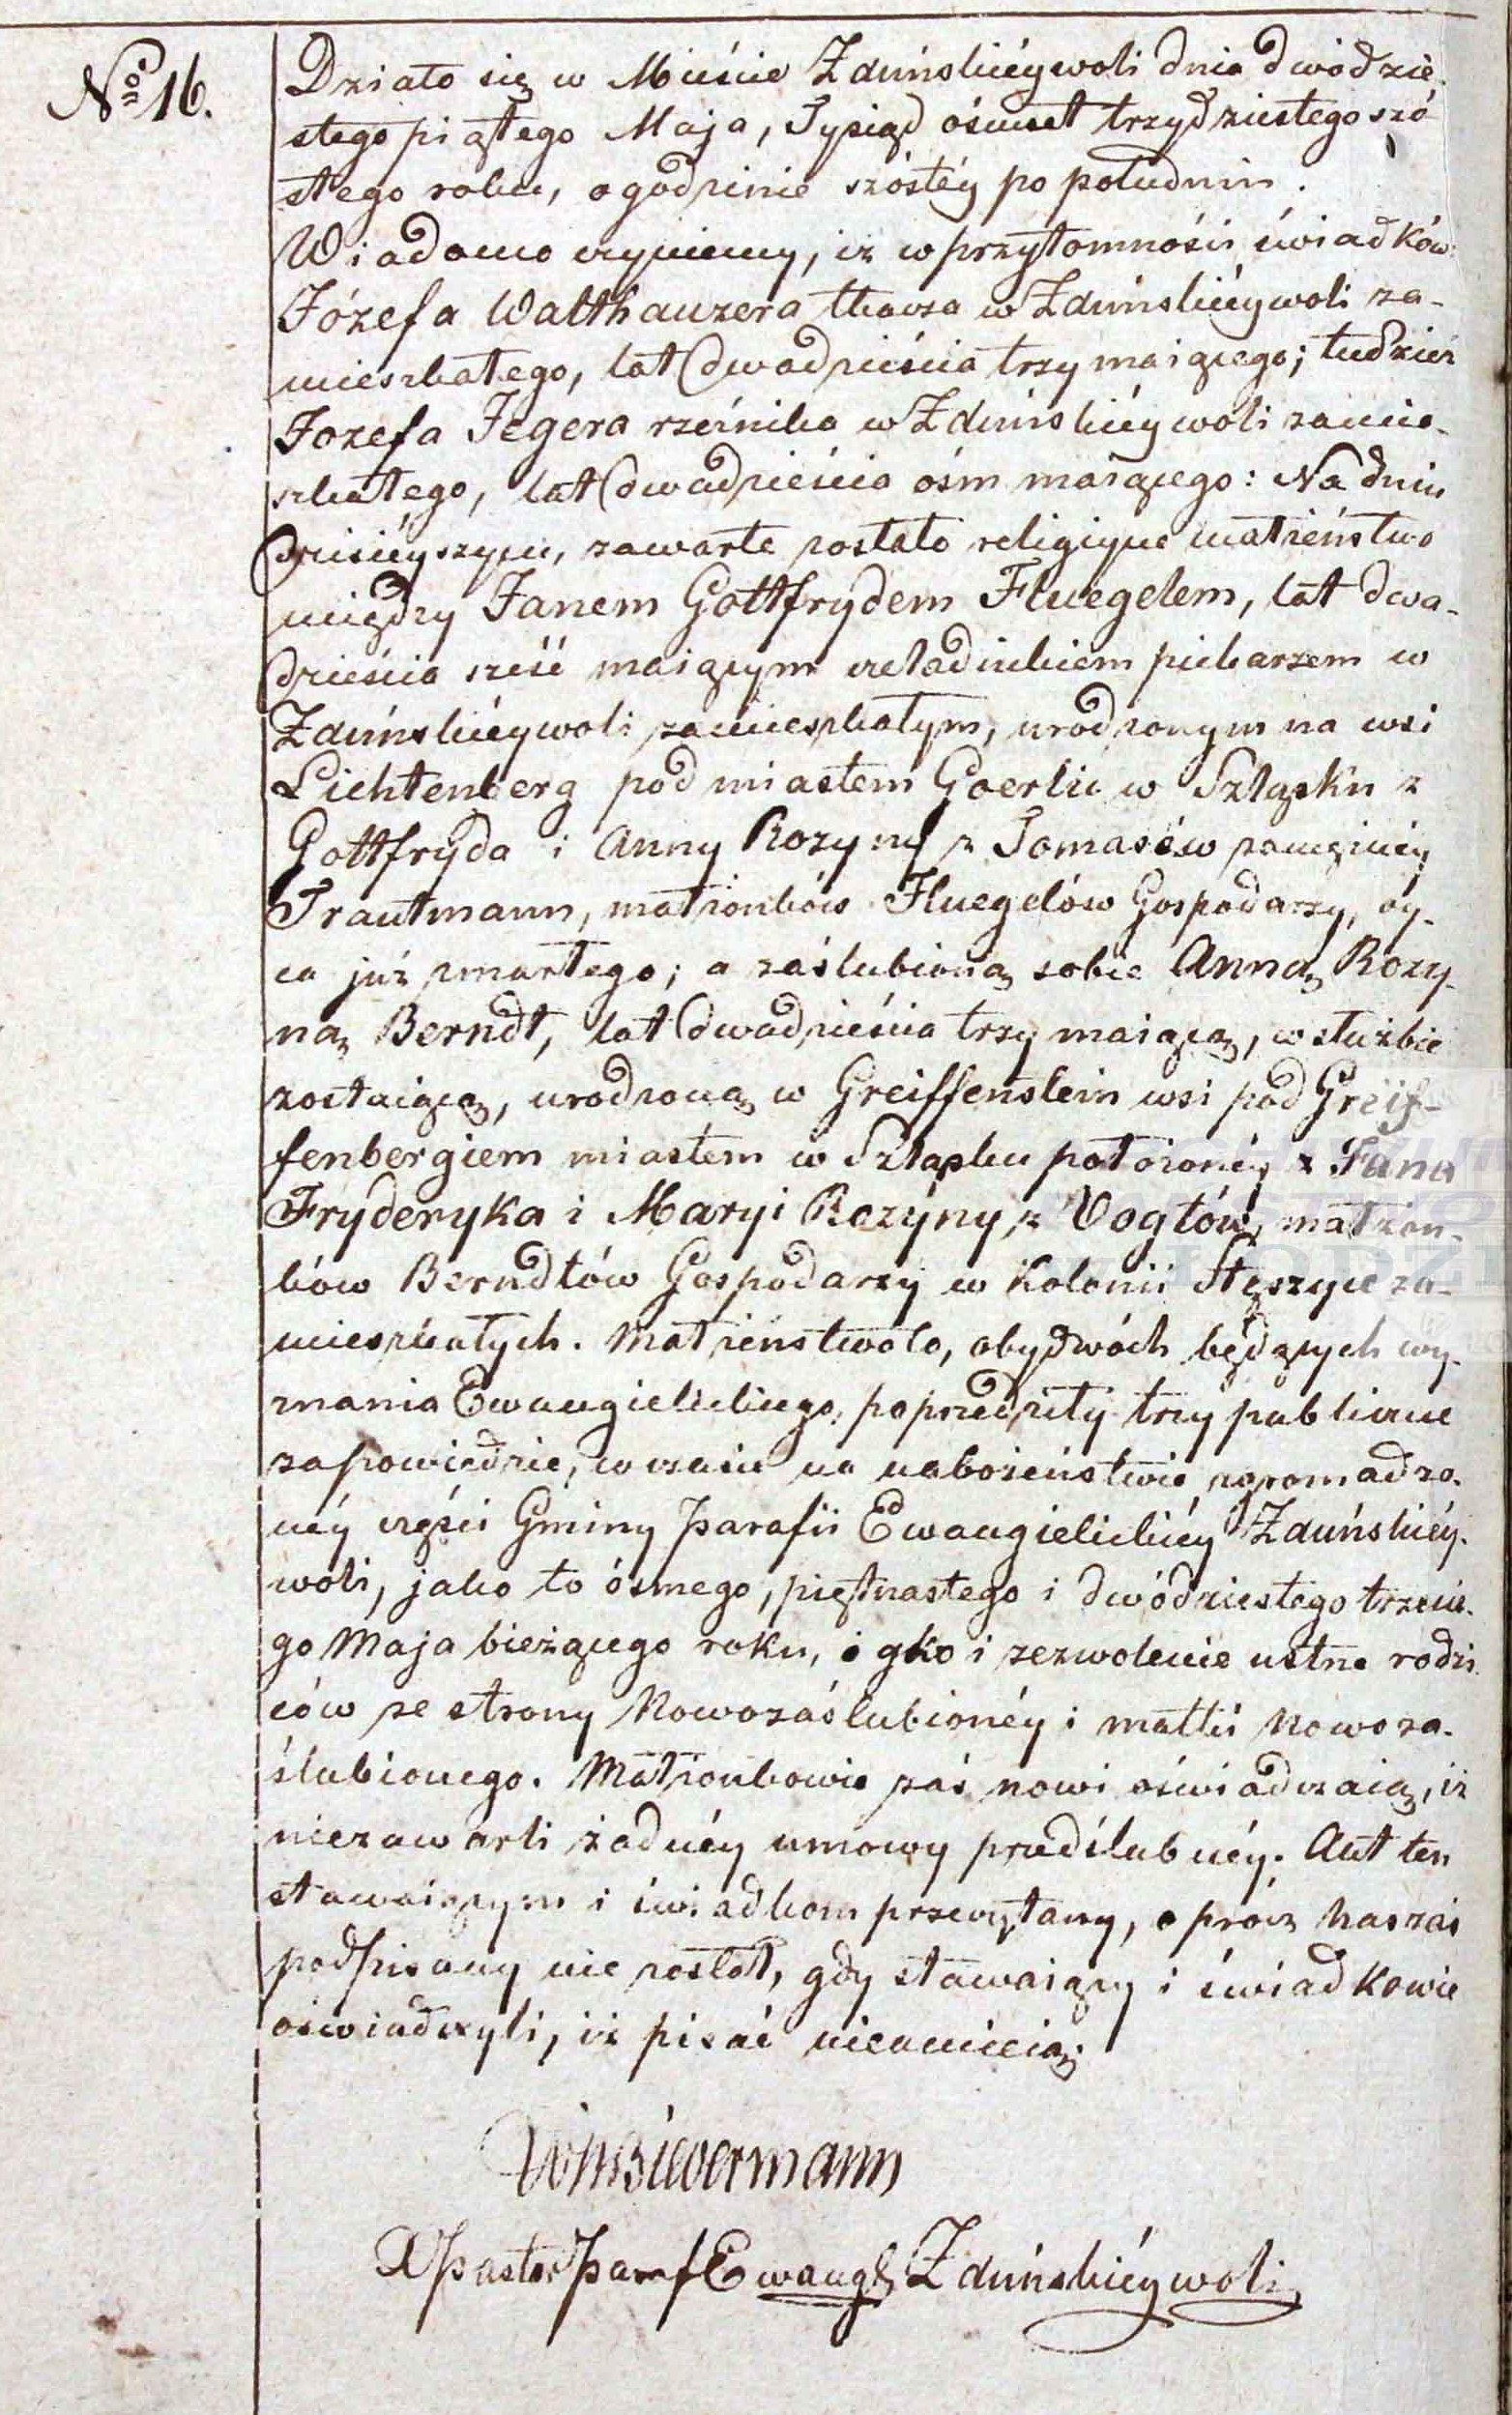 Nro 16.
Działo się w Mieście Zduńskiéywoli dnia dwódzie-
stego piątego Maja, Tysiąd ośmset trzydziestego szó-
stego roku, o godzinie szóstéy po południu.
Wiadomo czyniemy, iż w przytomności świadków
Józefa Walthauzera tkacza w Zduńskiéywoli za-
mieszkałego, lat dwadzieścia trzy maiącego; tudzież
Jozefa Jegera rzeźnika w Zduńskiéywoli zamie-
szkałego, lat dwadzieścia ośm maiącego: Na dniu
dzisiéyszym, zawarte zostało religijne małżeństwo
między Janem Gottfrydem Fluegelem, lat dwa-
dzieścia sześć maiącym czeladnikiem piekarzem w
Zduńskiéywoli zamieszkałym, urodzonym na wsi
Lichtenberg pod miastem Goerlic w Szląsku z
Gottfryda i Anny Rozyny z Tomasów zamęźnéy
Trautmann, małżonków Fluegelów Gospodarzy, óy-
ca już zmarłego; a zaślubioną sobie Anną Rozy-
ną Berndt, lat dwadzieścia trzy maiącą, w służbie
zostaiącą, urodzoną w Greiffenstein wsi pod Greif-
fenbergiem miastem w Szląsku położonéy z Jana
Fryderyka i Maryi Rozyny z Vogtów, małżon-
ków Berndtów Gospodarzy w Kolonii Stęszyce za-
mieszkałych. Małżeństwo to, obydwóch będących wy-
znania Ewangielickiego, poprzedziły trzy publiczne
zapowiedzie, w czasie na nabożeństwie zgromadzo-
néy części Gminy Parafii Ewangielickiéy Zduńskiéy-
woli, jako to ósmego, piętnastego i dwódziestego trzecie-
go Maja bieżącego roku, iako i zezwolenie ustne rodzi-
ców ze strony Nowozaślubionéy i matki Nowoza-
ślubionego. Małżonkowie zaś nowi oświadczaią, iż
niezawarli żadnéy umowy przedślubnéy. Akt ten
stawaiącym i świadkom przeczytany, oprócz Nas zaś
podpisany nie został, gdy stawaiący i świadkowie
oświadczyli, iż pisać nieumieią.
X Pastor Paraf Ewang Zduńskiéywoli